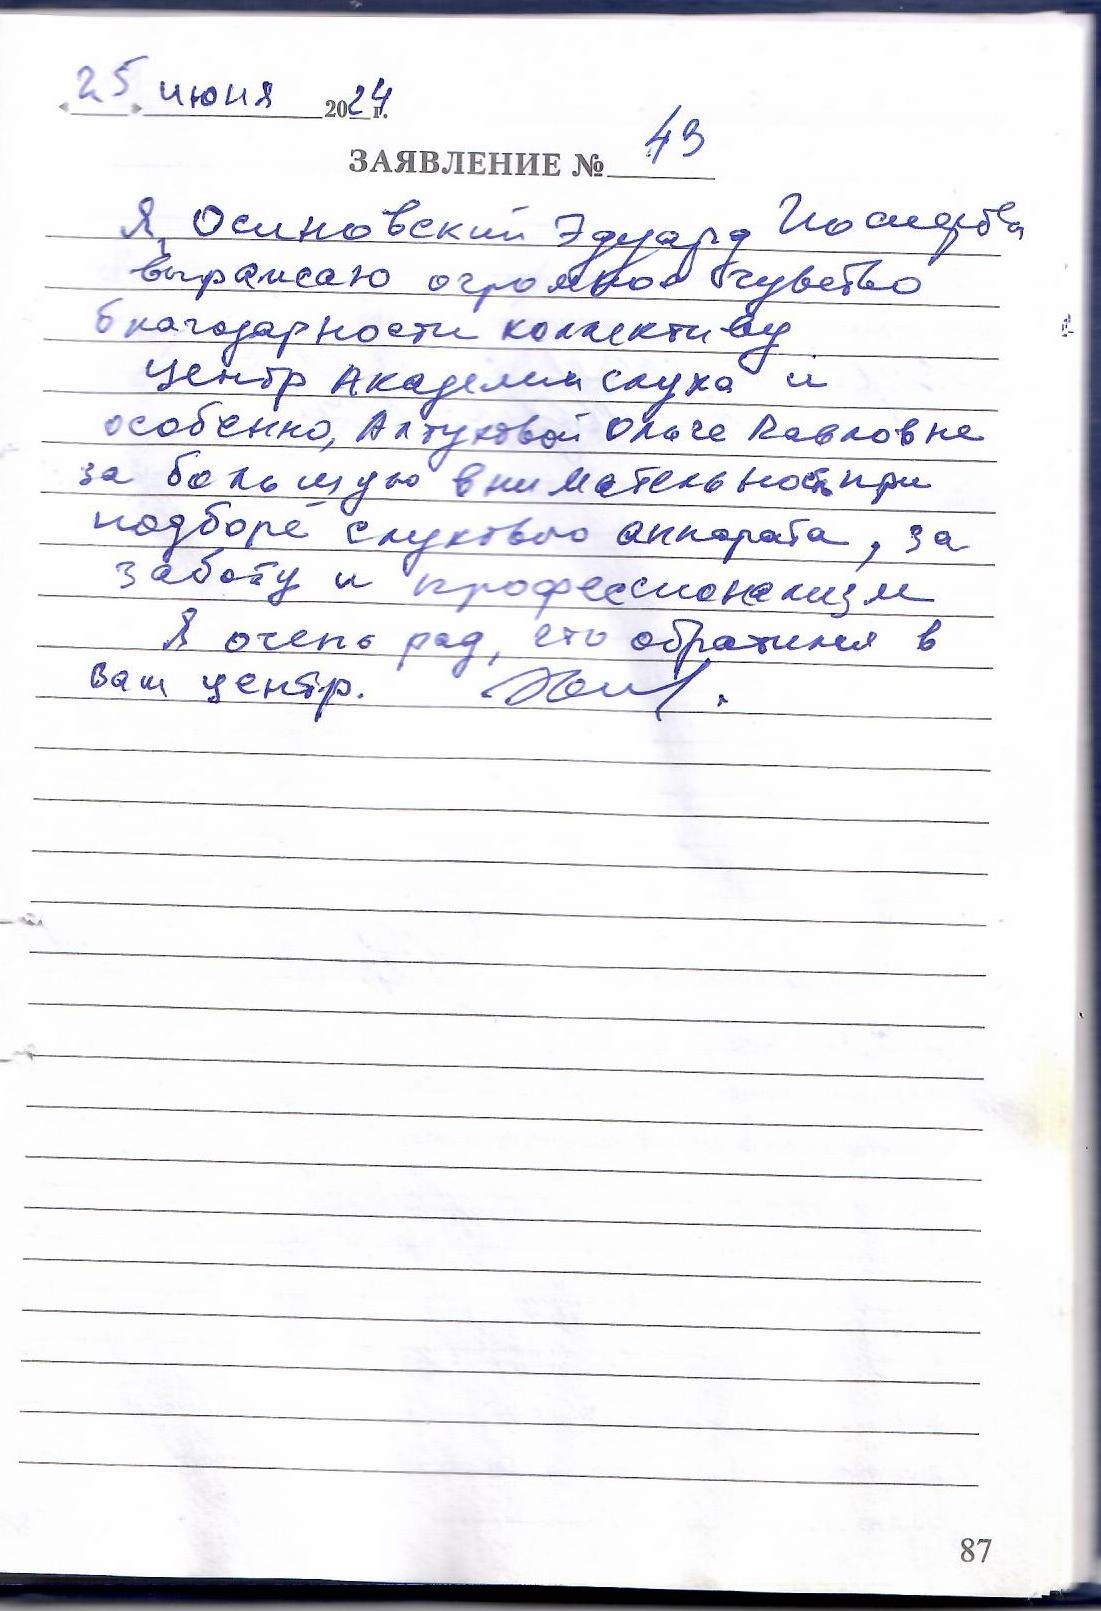 «25» июня 2024 г.
ЗАЯВЛЕНИЕ № 43
Я, Осиновский Эдуард
выражаю огромное чувство
благодарности коллективу
центр Академии слуха и
особенно, Алтуховой Ольге Павловне
за большую внимательность при
подборе слухового аппарата, за
заботу и профессионализм
Я очень рад, что обратился в
Ваш центр.
87